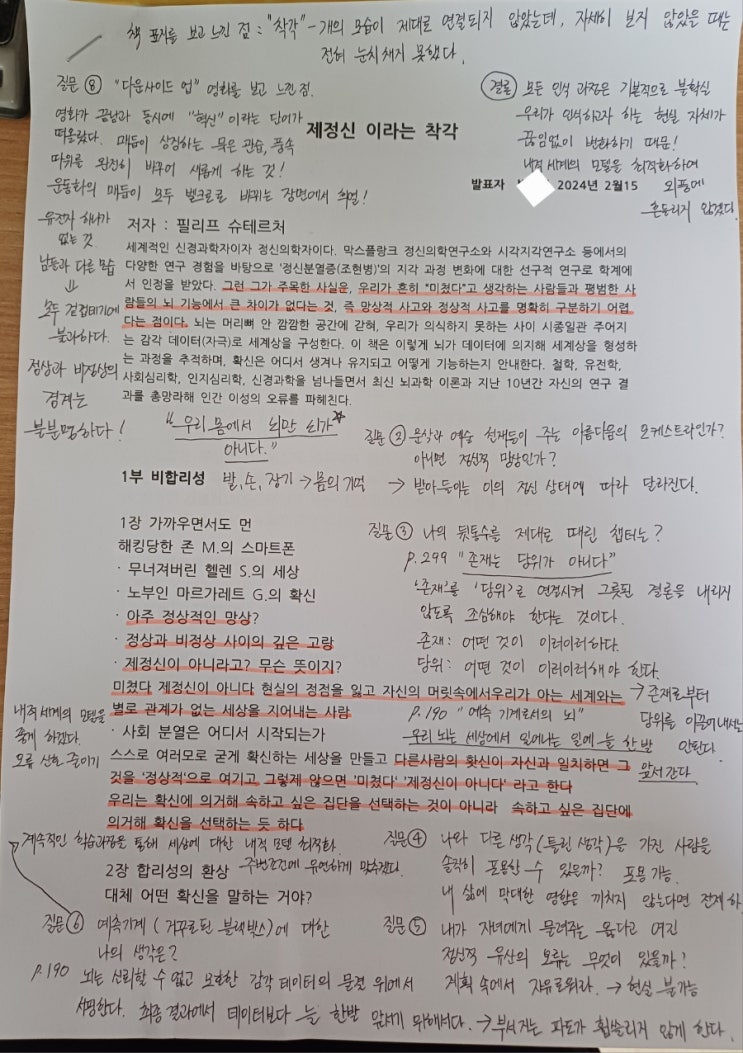 책 표지를 보고 느낀 점 : "착각" - 개의 모습이 제대로 연결되지 않았는데, 자세히 보지 않았을 때는
전혀 눈치채지 못했다.
질문 ⑧ "다운사이드 업" 영화를 보고 느낀 점.
영화가 끝남과 동시에 "혁신" 이라는 단어가
떠올랐다. 매듭이 상징하는 묵은 관습, 풍속
따위를 완전히 바꾸어 새롭게 하는 것!
운동화의 매듭이 모두 벨크로로 바뀌는 장면에서 희열!
결론 모든 인식 과정은 기본적으로 불확실
우리가 인식하고자 하는 현실 자체가
끊임없이 변화하기 때문!
내적 세계의 모델을 최적화하여
외풍에
흔들리지 않겠다.
제정신 이라는 착각
발표자 2024년 2월15
유전자 하나가
없는 것
남들과 다른 모습
⇓
모두 겉껍데기에
불과하다.
정상과 비정상의
경계는
불분명하다!
저자 : 필리프 슈테르처
세계적인 신경과학자이자 정신의학자이다. 막스플랑크 정신의학연구소와 시각지각연구소 등에서의
다양한 연구 경험을 바탕으로 '정신분열증(조현병)'의 지각 과정 변화에 대한 선구적 연구로 학계에
서 인정을 받았다. 그런 그가 주목한 사실은, 우리가 흔히 "미쳤다"고 생각하는 사람들과 평범한 사
람들의 뇌 기능에서 큰 차이가 없다는 것, 즉 망상적 사고와 정상적 사고를 명확히 구분하기 어렵
다는 점이다. 뇌는 머리뼈 안 깜깜한 공간에 갇혀, 우리가 의식하지 못하는 사이 시종일관 주어지
는 감각 데이터(자극)로 세계상을 구성한다. 이 책은 이렇게 뇌가 데이터에 의지해 세계상을 형성하
는 과정을 추적하며, 확신은 어디서 생겨나 유지되고 어떻게 기능하는지 안내한다. 철학, 유전학,
사회심리학, 인지심리학, 신경과학을 넘나들면서 최신 뇌과학 이론과 지난 10년간 자신의 연구 결
과를 총망라해 인간 이성의 오류를 파헤친다.
"우리 몸에서 뇌만 뇌가
아니다."
질문 ② 문학과 예술 천재들이 주는 아름다움의 오케스트라인가?
아니면 정신적 망상인가?
→ 받아들이는 이의 정신 상태에 따라 달라진다.
1부 비합리성 발, 손, 장기 → 몸의 기억
1장 가까우면서도 먼
해킹당한 존 M.의 스마트폰
· 무너져버린 헬렌 S.의 세상
· 노부인 마르가레트 G.의 확신
· 아주 정상적인 망상?
· 정상과 비정상 사이의 깊은 고랑
· 제정신이 아니라고? 무슨 뜻이지?
질문 ③ 나의 뒷통수를 제대로 때린 챕터는?
p.299 "존재는 당위가 아니다"
'존재'를 '당위'로 연결시켜 그릇된 결론을 내리지
않도록 조심해야 한다는 것이다.
존재: 어떤 것이 이러이러하다.
당위: 어떤 것이 이러이러해야 한다.
→ 존재로부터
당위를 이끌어내서는
안된다.
미쳤다 제정신이 아니다 현실의 접점을 잃고 자신의 머릿속에서우리가 아는 세계와는
별로 관계가 없는 세상을 지어내는 사람
p.190 "예측 기계로서의 뇌"
우리 뇌는 세상에서 일어나는 일에 늘 한발
앞서간다
내적 세계의 모델을
좋게 하겠다.
오류 신호 줄이기
· 사회 분열은 어디서 시작되는가
스스로 여러모로 굳게 확신하는 세상을 만들고 다른사람의 홧신이 자신과 일치하면 그
것을 '정상적'으로 여기고, 그렇제 않으면 '미쳤다' '제정신이 아니다' 라고 한다
우리는 확신에 의거해 속하고 싶은 집단을 선택하는 것이 아니라 속하고 싶은 집단에
의거해 확신을 선택하는 듯 하다
계속적인 학습과정을 통해 세상에 대한 내적 모델 최적화.
주변조건에 유연하게 맞추겠다.
2장 합리성의 환상
대체 어떤 확신을 말하는 거야?
질문 ④ 나와 다른 생각(틀린 생각)을 가진 사람을
솔직히 포용할 수 있을까? 포용 가능.
내 삶에 막대한 영향은 끼치지 않는다면 전제 하
질문 ⑥ 예측기계 (거꾸로된 블랙박스)에 대한
나의 생각은?
질문 ⑤ 내가 자녀에게 물려주는 옳다고 여긴
정신적 유산의 오류는 무엇이 있을까?
계획 속에서 자유로워라. → 현실 불가능
p.190 뇌는 신뢰할 수 없고 모호한 감각 데이터의 물결 위에서
서핑한다. 최종 결과에서 데이터보다 늘 한발 앞서기 위해서다. → 부서지는 파도가 휩쓸리지 않게 한다.